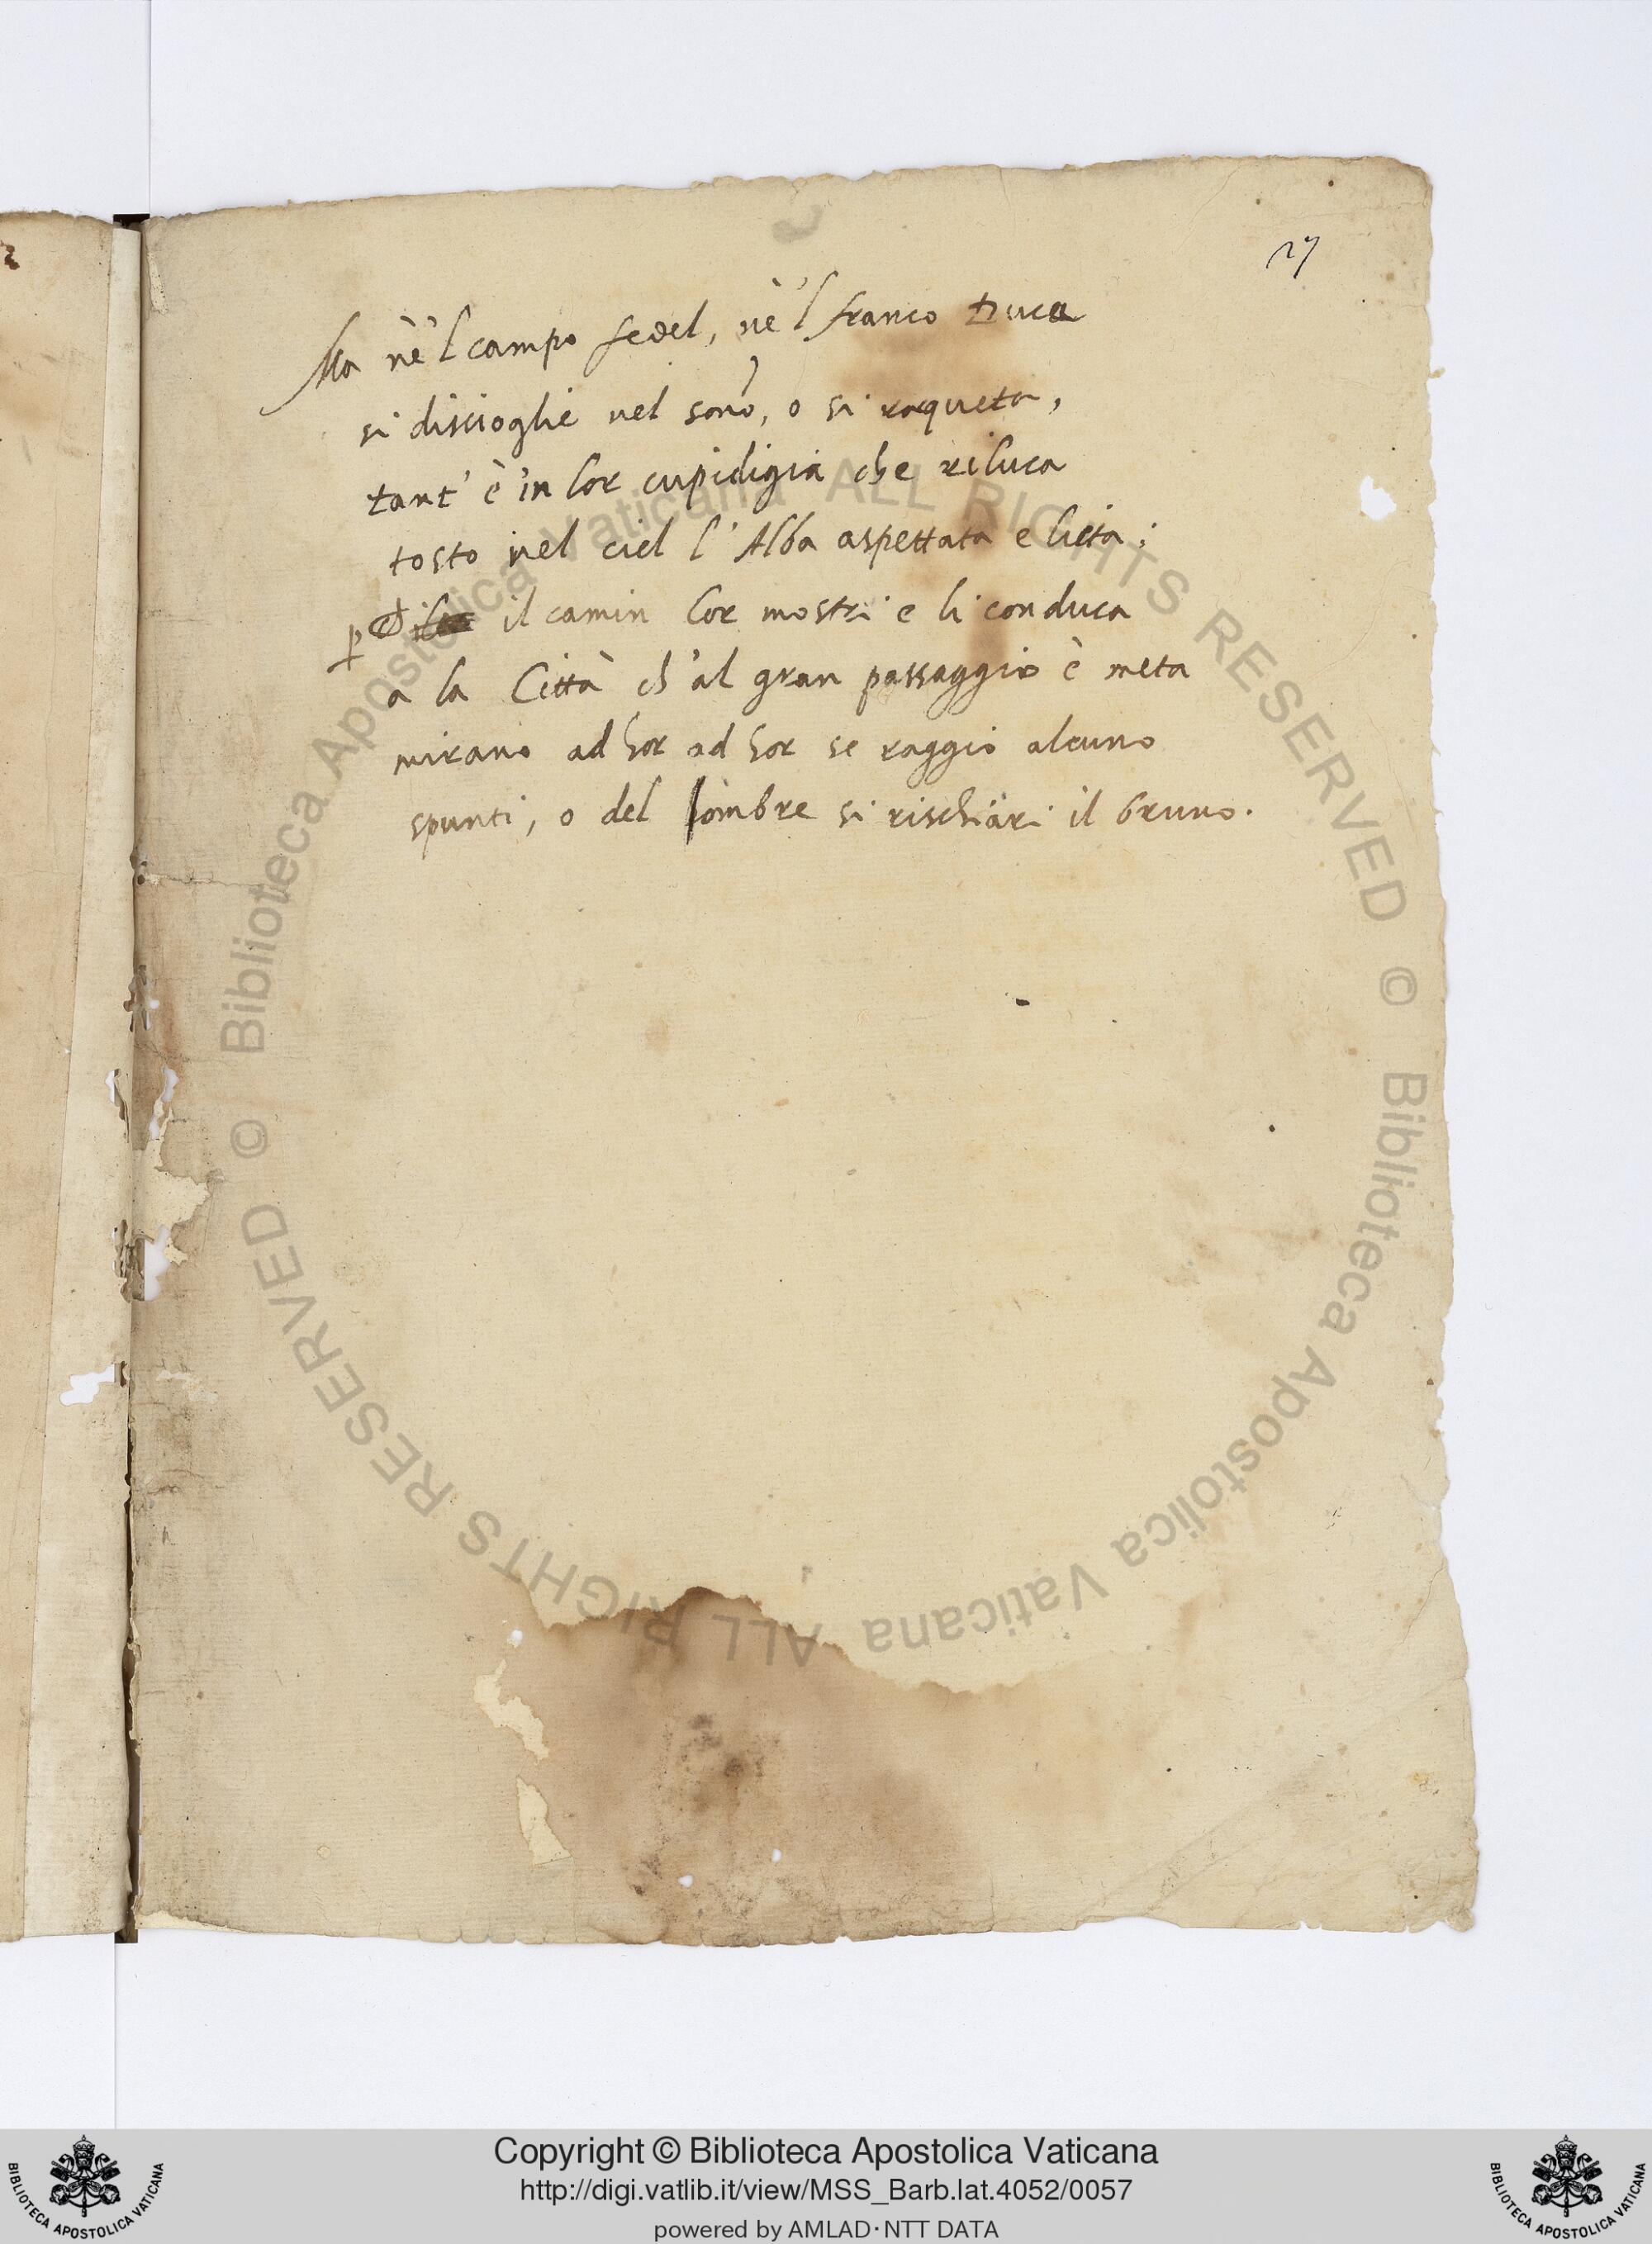 27
Ma nè 'l campo fedel, nè 'l franco Duca
si discioglie nel sono, o si raqueta,
tant' è in lor cupidigia che riluca
tosto nel ciel l'Alba aspettata e lieta;
il camin lor mostri e li conduca
a la Città ch'al gran passaggio è meta
mirano ad hor ad hor se raggio alcuno
spunti, o del l'ombre si rischiari il bruno.
© Biblioteca Apostolica Vaticana ALL RIGHTS RESERVED © Biblioteca Apostolica Vaticana ALL RIGHTS RESERVED
Copyright © Biblioteca Apostolica Vaticana
http://digi.vatlib.it/view/MSS_Barb.lat.4052/0057
powered by AMLAD·NTT DATA
BIBLIOTECA APOSTOLICA VATICANA
BIBLIOTECA APOSTOLICA VATICANA